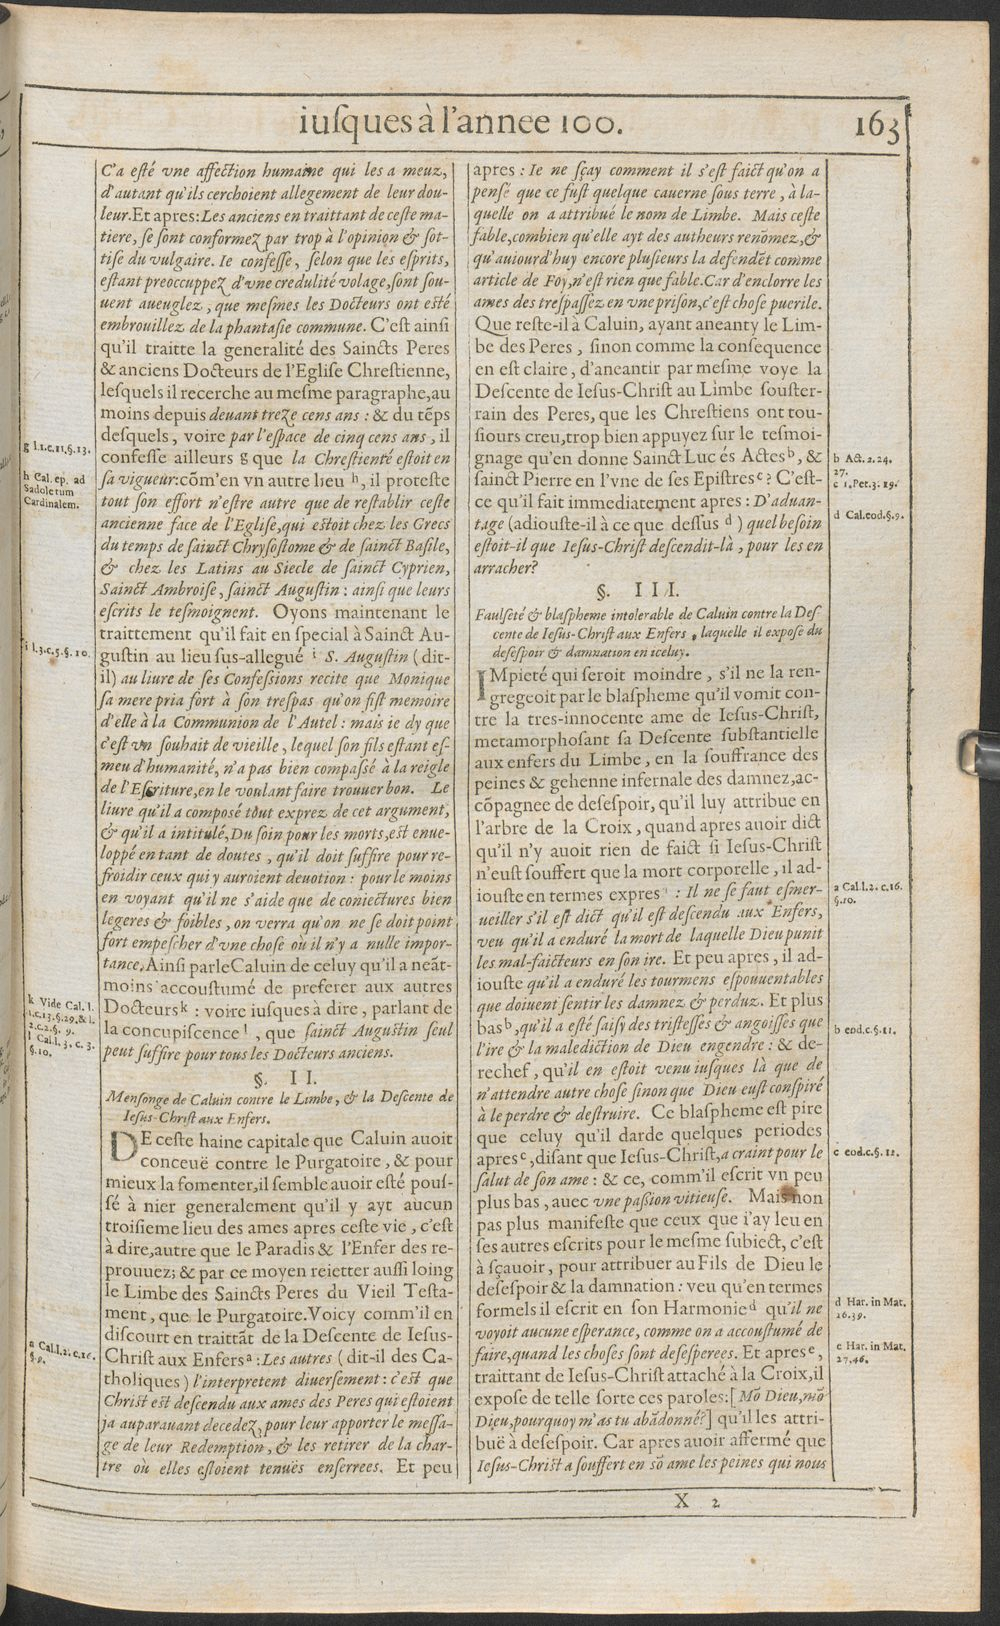 iusques à l'annee 100.
163
C'a esté vne affection humaine qui les a meuz,
d'autant qu'ils cerchoient allegement de leur dou-
leur. Et apres: Les anciens en traittant de ceste ma-
tiere, se sont conformez par trop à l'opinion & sot-
tise du vulgaire. Ie confesse, selon que les esprits,
estant preoccuppez d'vne credulité volage, sont sou-
uent aueuglez, que mesmes les Docteurs ont esté
embrouillez de la phantasie commune. C'est ainsi
qu'il traitte la generalité des Saincts Peres
& anciens Docteurs de l'Eglise Chrestienne,
lesquels il recerche au mesme paragraphe, au
moins depuis deuant treze cens ans: & du tẽps
desquels, voire par l'espace de cinq cens ans, il
confesse ailleurs g que la Chrestienté estoit en
sa vigueur: cõm'en vn autre lieu h, il proteste
tout son effort n'estre autre que de restablir ceste
ancienne face de l'Eglise, qui estoit chez les Grecs
du temps de sainct Chrysostome & de sainct Basile,
& chez les Latins au Siecle de sainct Cyprien,
Sainct Ambroise, sainct Augustin: ainsi que leurs
escrits le tesmoignent. Oyons maintenant le
traittement qu'il fait en special à Sainct Au-
gustin au lieu sus-allegué i S. Augustin (dit-
il) au liure de ses Confessions recite que Monique
sa mere pria fort à son trespas qu'on fist memoire
d'elle à la Communion de l'Autel: mais ie dy que
c'est vn souhait de vieille, lequel son fils estant es-
meu d'humanité, n'a pas bien compassé à la reigle
de l'Escriture, en le voulant faire trouuer bon. Le
liure qu'il a composé tout exprez de cet argument,
& qu'il a intitulé, Du soin pour les morts, est enue-
loppé en tant de doutes, qu'il doit suffire pour re-
froidir ceux qui y auroient deuotion: pour le moins
en voyant qu'il ne s'aide que de coniectures bien
legeres & foibles, on verra qu'on ne se doit point
fort empescher d'vne chose où il n'y a nulle impor-
tance. Ainsi parle Caluin de celuy qu'il a neãt-
moins accoustumé de preferer aux autres
Docteurs k : voire iusques à dire, parlant de
la concupiscence l, que sainct Augustin seul
peut suffire pour tous les Docteurs anciens.
§. II.
Mensonge de Caluin contre le Limbe, & la Descente de
Iesus-Christ aux Enfers.
DE ceste haine capitale que Caluin auoit
conceuë contre le Purgatoire, & pour
mieux la fomenter, il semble auoir esté pous-
sé à nier generalement qu'il y ayt aucun
troisieme lieu des ames apres ceste vie, c'est
à dire, autre que le Paradis & l'Enfer des re-
prouuez; & par ce moyen reietter aussi loing
le Limbe des Saincts Peres du Vieil Testa-
ment, que le Purgatoire. Voicy comm'il en
discourt en traittãt de la Descente de Iesus-
Christ aux Enfers a : Les autres (dit-il des Ca-
tholiques) l'interpretent diuersement: c'est que
Christ est descendu aux ames des Peres qui estoient
ja auparauant decedez, pour leur apporter le messa-
ge de leur Redemption, & les retirer de la char-
tre où elles estoient tenuës enserrees. Et peu
g l.1.c.11.§.13.
h Cal. ep. ad
Sadoletum
Cardinalem.
i l.3.c.5.§.10.
k Vide Cal. l.
1.c.13.§.29.& l.
2.c.2.§. 9.
l Cal.l. 3. c. 3.
§.10.
a Cal.l.2.c.16.
§.9.
apres: Ie ne sçay comment il s'est faict qu'on a
pensé que ce fust quelque cauerne sous terre, à la-
quelle on a attribué le nom de Limbe. Mais ceste
fable, combien qu'elle ayt des autheurs renõmez, &
qu'auiourd'huy encore plusieurs la defendẽt comme
article de Foy, n'est rien que fable. Car d'enclorre les
ames des trespassez en vne prison, c'est chose puerile.
Que reste-il à Caluin, ayant aneanty le Lim-
be des Peres, sinon comme la consequence
en est claire, d'aneantir par mesme voye la
Descente de Iesus-Christ au Limbe souster-
rain des Peres, que les Chrestiens ont tou-
siours creu, trop bien appuyez sur le tesmoi-
gnage qu'en donne Sainct Luc és Actes b, &
sainct Pierre en l'vne de ses Epistres c? C'est-
ce qu'il fait immediatement apres: D'aduan-
tage (adiouste-il à ce que dessus d) quel besoin
estoit-il que Iesus-Christ descendit-là, pour les en
arracher?
§. III.
Faulseté & blaspheme intolerable de Caluin contre la Des-
cente de Iesus-Christ aux Enfers, laquelle il expose du
desespoir & damnation en iceluy.
IMpieté qui seroit moindre, s'il ne la ren-
gregeoit par le blaspheme qu'il vomit con-
tre la tres-innocente ame de Iesus-Christ,
metamorphosant sa Descente substantielle
aux enfers du Limbe, en la souffrance des
peines & gehenne infernale des damnez, ac-
cõpagnee de desespoir, qu'il luy attribue en
l'arbre de la Croix, quand apres auoir dict
qu'il n'y auoit rien de faict si Iesus-Christ
n'eust souffert que la mort corporelle, il ad-
iouste en termes expres a : Il ne se faut esmer-
ueiller s'il est dict qu'il est descendu aux Enfers,
veu qu'il a enduré la mort de laquelle Dieu punit
les mal-faicteurs en son ire. Et peu apres, il ad-
iouste qu'il a enduré les tourmens espouuentables
que doiuent sentir les damnez & perduz. Et plus
bas b, qu'il a esté saisy des tristesses & angoisses que
l'ire & la malediction de Dieu engendre: & de-
rechef, qu'il en estoit venu iusques là que de
n'attendre autre chose sinon que Dieu eust conspiré
à le perdre & destruire. Ce blaspheme est pire
que celuy qu'il darde quelques periodes
apres c, disant que Iesus-Christ, a craint pour le
salut de son ame: & ce, comm'il escrit vn peu
plus bas, auec vne passion vitieuse. Mais non
pas plus manifeste que ceux que i'ay leu en
ses autres escrits pour le mesme subiect, c'est
à sçauoir, pour attribuer au Fils de Dieu le
desespoir & la damnation: veu qu'en termes
formels il escrit en son Harmonie d qu'il ne
voyoit aucune esperance, comme on a accoustumé de
faire, quand les choses sont desesperees. Et apres e,
traittant de Iesus-Christ attaché à la Croix, il
expose de telle sorte ces paroles: [Mõ Dieu, mõ
Dieu, pourquoy m'as tu abãdonné?] qu'il les attri-
buë à desespoir. Car apres auoir affermé que
Iesus-Christ a souffert en sõ ame les peines qui nous
b Act. 2. 24.
27.
c 1. Pet. 3. 19.
d Cal.eod.§.9.
a Cal.l.2. c.16.
§.10.
b eod.c.§.11.
c eod.c.§. 12.
d Har. in Mat.
26.39.
e Har. in Mat.
27.46.
X 2